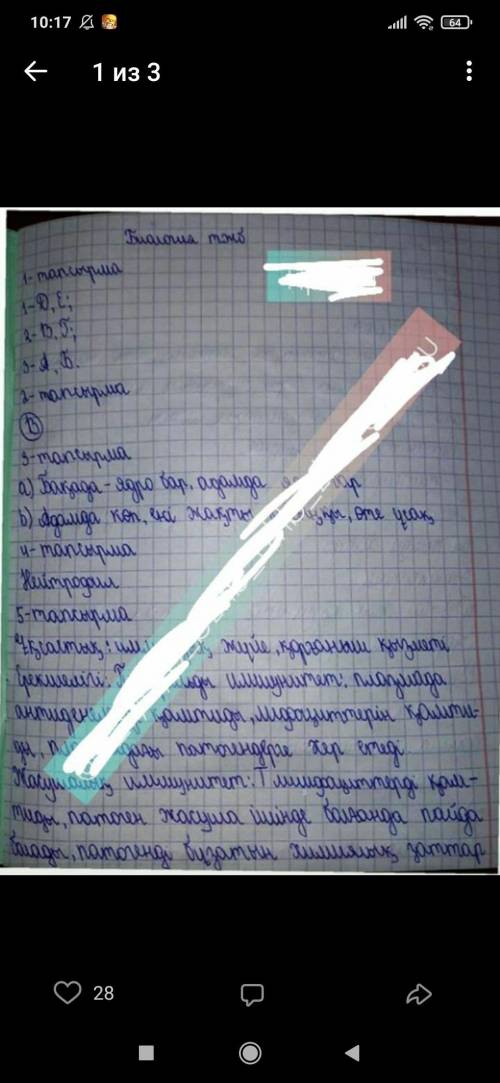 10:17
64
1 из 3
Биология тжб
1-тапсырма
1-Д, Е;
2-В, Г;
3-А, Б.
2-тапсырма
В
3-тапсырма
а) Бақада-ядро бар, адамда
b) Адамда көп, екі жақты, өте ұсақ
4-тапсырма
Нейтрофил
5-тапсырма
Ұқсастық: жүйе, қорғаныш қызметі
Ерекшелігі: иммунитет: плазмада
қамтиды, лифоциттерін қамти-
ды, патогендерге жер етеді
Жасушалық иммунитет: Т лимфоциттерді қам-
тиды, патоген жасуша ішінде болғанда пайда
болады, патогенді бұзатын химиялық заттар
28